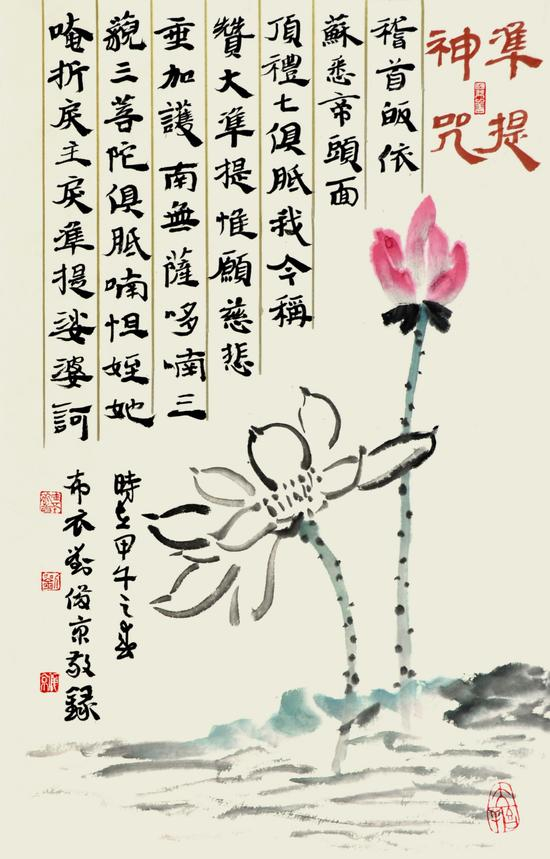 凖提
神咒
稽首皈依
蘇悉帝頭面
頂禮七俱胝我今稱
讚大凖提惟願慈悲
垂加護南無薩哆喃三
藐三菩陀俱胝喃怛姪她
唵折戾主戾凖提娑婆訶
時在甲午之春
布衣劉俊京敬錄